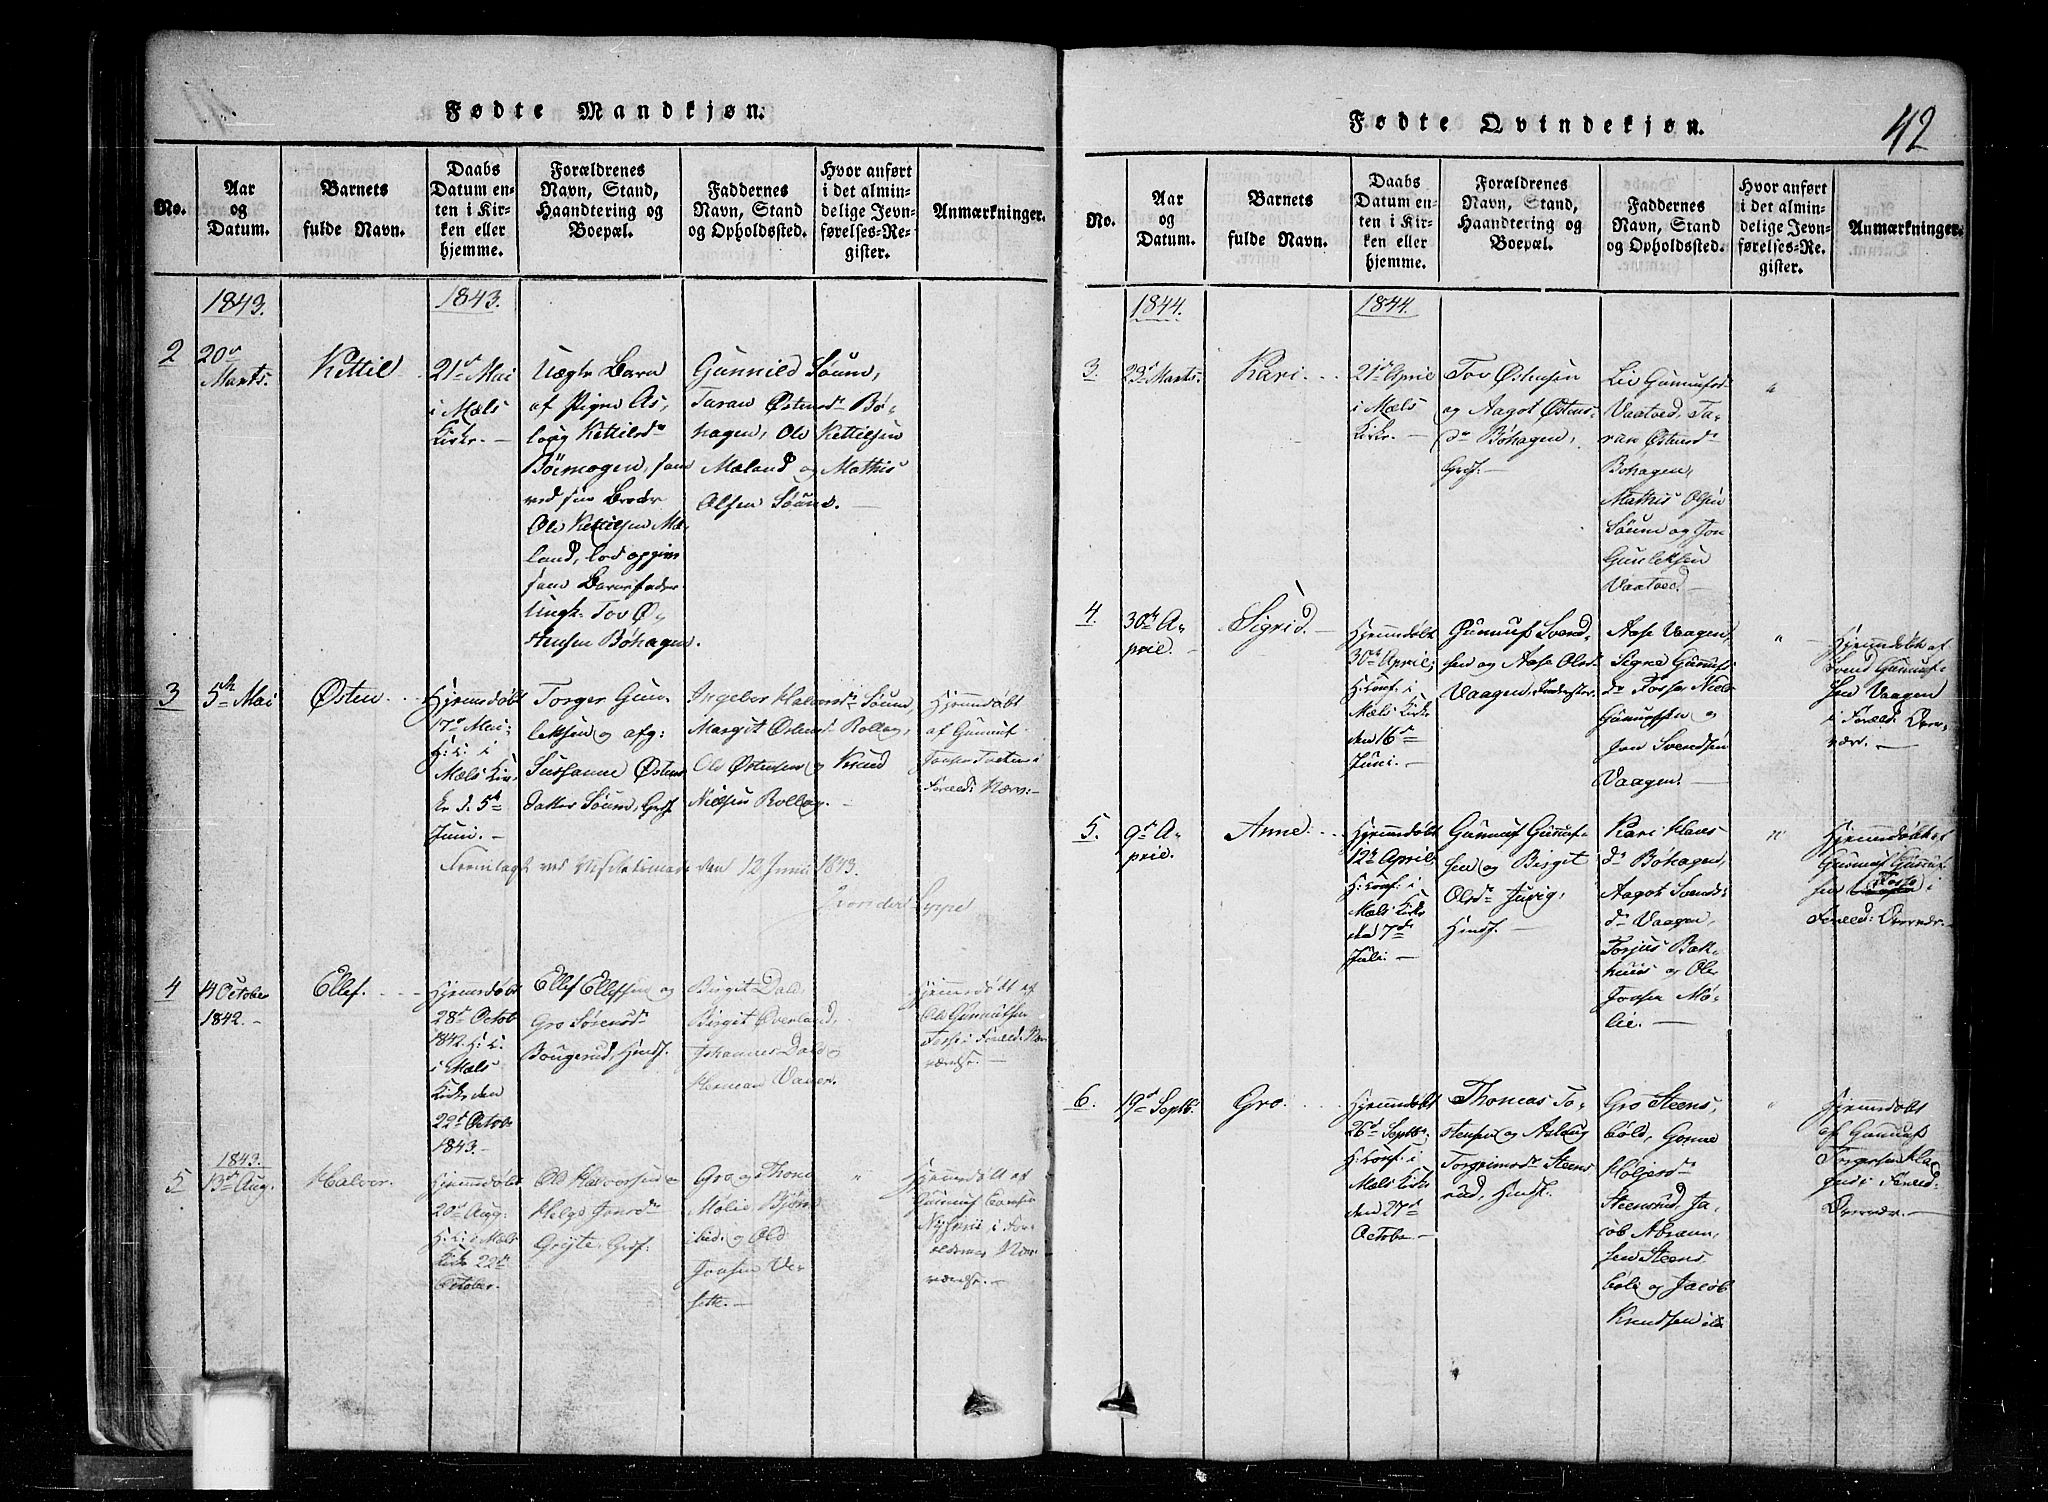 Fødte Mandkjøn.
No.
Aar
og
Datum.
Barnets
fulde Navn.
Daabs
Datum en-
ten i Kir-
ken eller
hjemme.
Forældrenes
Navn, Stand,
Haandtering og
Boepæl.
Faddernes
Navn, Stand
og Opholdssted.
Hvor anført
i det almin-
delige Jevn-
førelses-Re-
gister.
Anmærkninger.
1843.
1843.
2
20de
Marts.
Kettil
21de Mai
i Mæls
Kirke. —
Uægte Barn
af Pigen As-
loug Kettilsdr
Böemogen, som
ved sin Broder
Ole Kettilsen Mæ-
land, lod opgive
som Barnefader
Ungk. Tov Ø-
stensen Bøhagen.
Gunnild Søum,
Taran Østensdr Bø-
hagen, Ole Kettilsen
Mæland og Mathis
Olsen Søum. —
3
5te Mai
Østen
Hjemmedøbt
17de Mai;
H: C: i
Mæls Kir-
ke d. 5te
Juni. —
Torger Gun-
leksen og afg:
Sussanne Østens
datter Søum, Grdf.
Ingebor Halvorsdr Søum,
Margit Østensdr Rollag,
Ole Østensen og Knud
Nielsen Rollag. —
Hjemmedøbt
af Gunnuf
Jonsen
i
Foreld: Nærv: —
Fremlagt ved Visitatsmøde den 12 Juni 1843.
4
14 October
1842. —
Ellef.
Hjemmedøbt
28de Octob
1842. H: C:
i Mæls
Kirke den
22de Octob
1843. —
Ellef Ellefsen og
Gro Sørensdr
Bougerud, Huusf.
Birgit Dale,
Birgit Øverland,
Johannes Dale og
Herman Vaaer.
Hjemmedøbt af
Ole Gunnufsen
Fosse i Foreld: Nær-
værelse. —
5
1843.
13de Aug.
Halvor.
Hjemmedøbt
20de Aug:
H: C: i Mæls
Kirke 22de
October.
Ole Halvorsen og
Helge Jonsdr
Grøjte, Grdf.
Gro og Thone
Molie
og Ole
Jonsen Ve-
sette. —
"
Hjemmedøbt af
Gunnuf
i For-
ældrenes Nær-
værelse. —
42
Fødte Qvindekjøn.
No.
Aar
og
Datum.
Barnets
fulde Navn.
Daabs
Datum en-
ten i Kir-
ken eller
hjemme.
Forældrenes
Navn, Stand,
Haandtering og
Boepæl.
Faddernes
Navn, Stand
og Opholdssted.
Hvor anført
i det almin-
delige Jevn-
førelses-Re-
gister.
Anmærkninger.
1844.
1844.
3.
23de Marts.
Kari.
21de April
i Mæls
Kirke. —
Tov Østensen
og Aagot Østens-
dr Bøhagen,
Grdf. —
Liv Gunnufsdr
Vaatved, Ta-
ran Østensdr
Bøhagen,
Mathis Olsen
Søum og Jon
Gunleksen
Vaatved. —
"
4.
30de A-
pril.
Sigrid.
Hjemmedøbt
30de April;
H: Conf: i
Mæls Kirke
den 16de
Juni. —
Gunnuf Svend-
sen og Aase Olsdr
Vaagen,
Aase Vaagen,
Signe Gunnufs-
dr Fosse, Niels
Gunnufsen og
Jon Svendsen
Vaagen. —
"
Hjemmedøbt af
Svend Gunnuf-
sen Vaagen
i Foreld: Over-
vær. —
5.
9de A-
pril.
Anne
Hjemmedøbt
12te April;
H: Conf: i
Mæls Kirke
den 7de
Juli. —
Gunnuf Gunnuf-
sen og Birgit
Olsdr Juvig,
Huusf. —
Kari Klaus-
dr Bøhagen,
Aagot Svends-
dr Vaagen,
Torjus Bak-
huus og Ole
Jonsen Mø-
lie. —
"
Hjemmedøbt af
Gunnuf Gunnuf-
sen Fosse i
Foreld: Overvær. —
6.
19de Septb.
Gro.
Hjemmedøbt
26de Septb:
H: Conf: i
Mæls Kirke
den 27de
Octobr —
Thomas To-
stensen og Aslaug
Torgrimsdr Steens-
rud, Huusf.
Gro Steens-
bøle, Gonne
Holjersdr
Steensrud, Ja-
cob Abram-
sen Steens-
bøle og Jacob
Knudsen
"
Hjemmedøbt
af Gunnuf
Torgersen
i Foreld:
Overvær. —